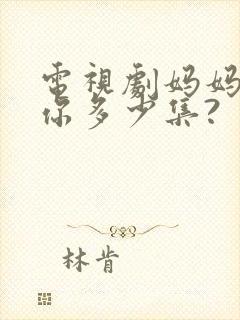 電視劇妈妈
你多少集?
林肯